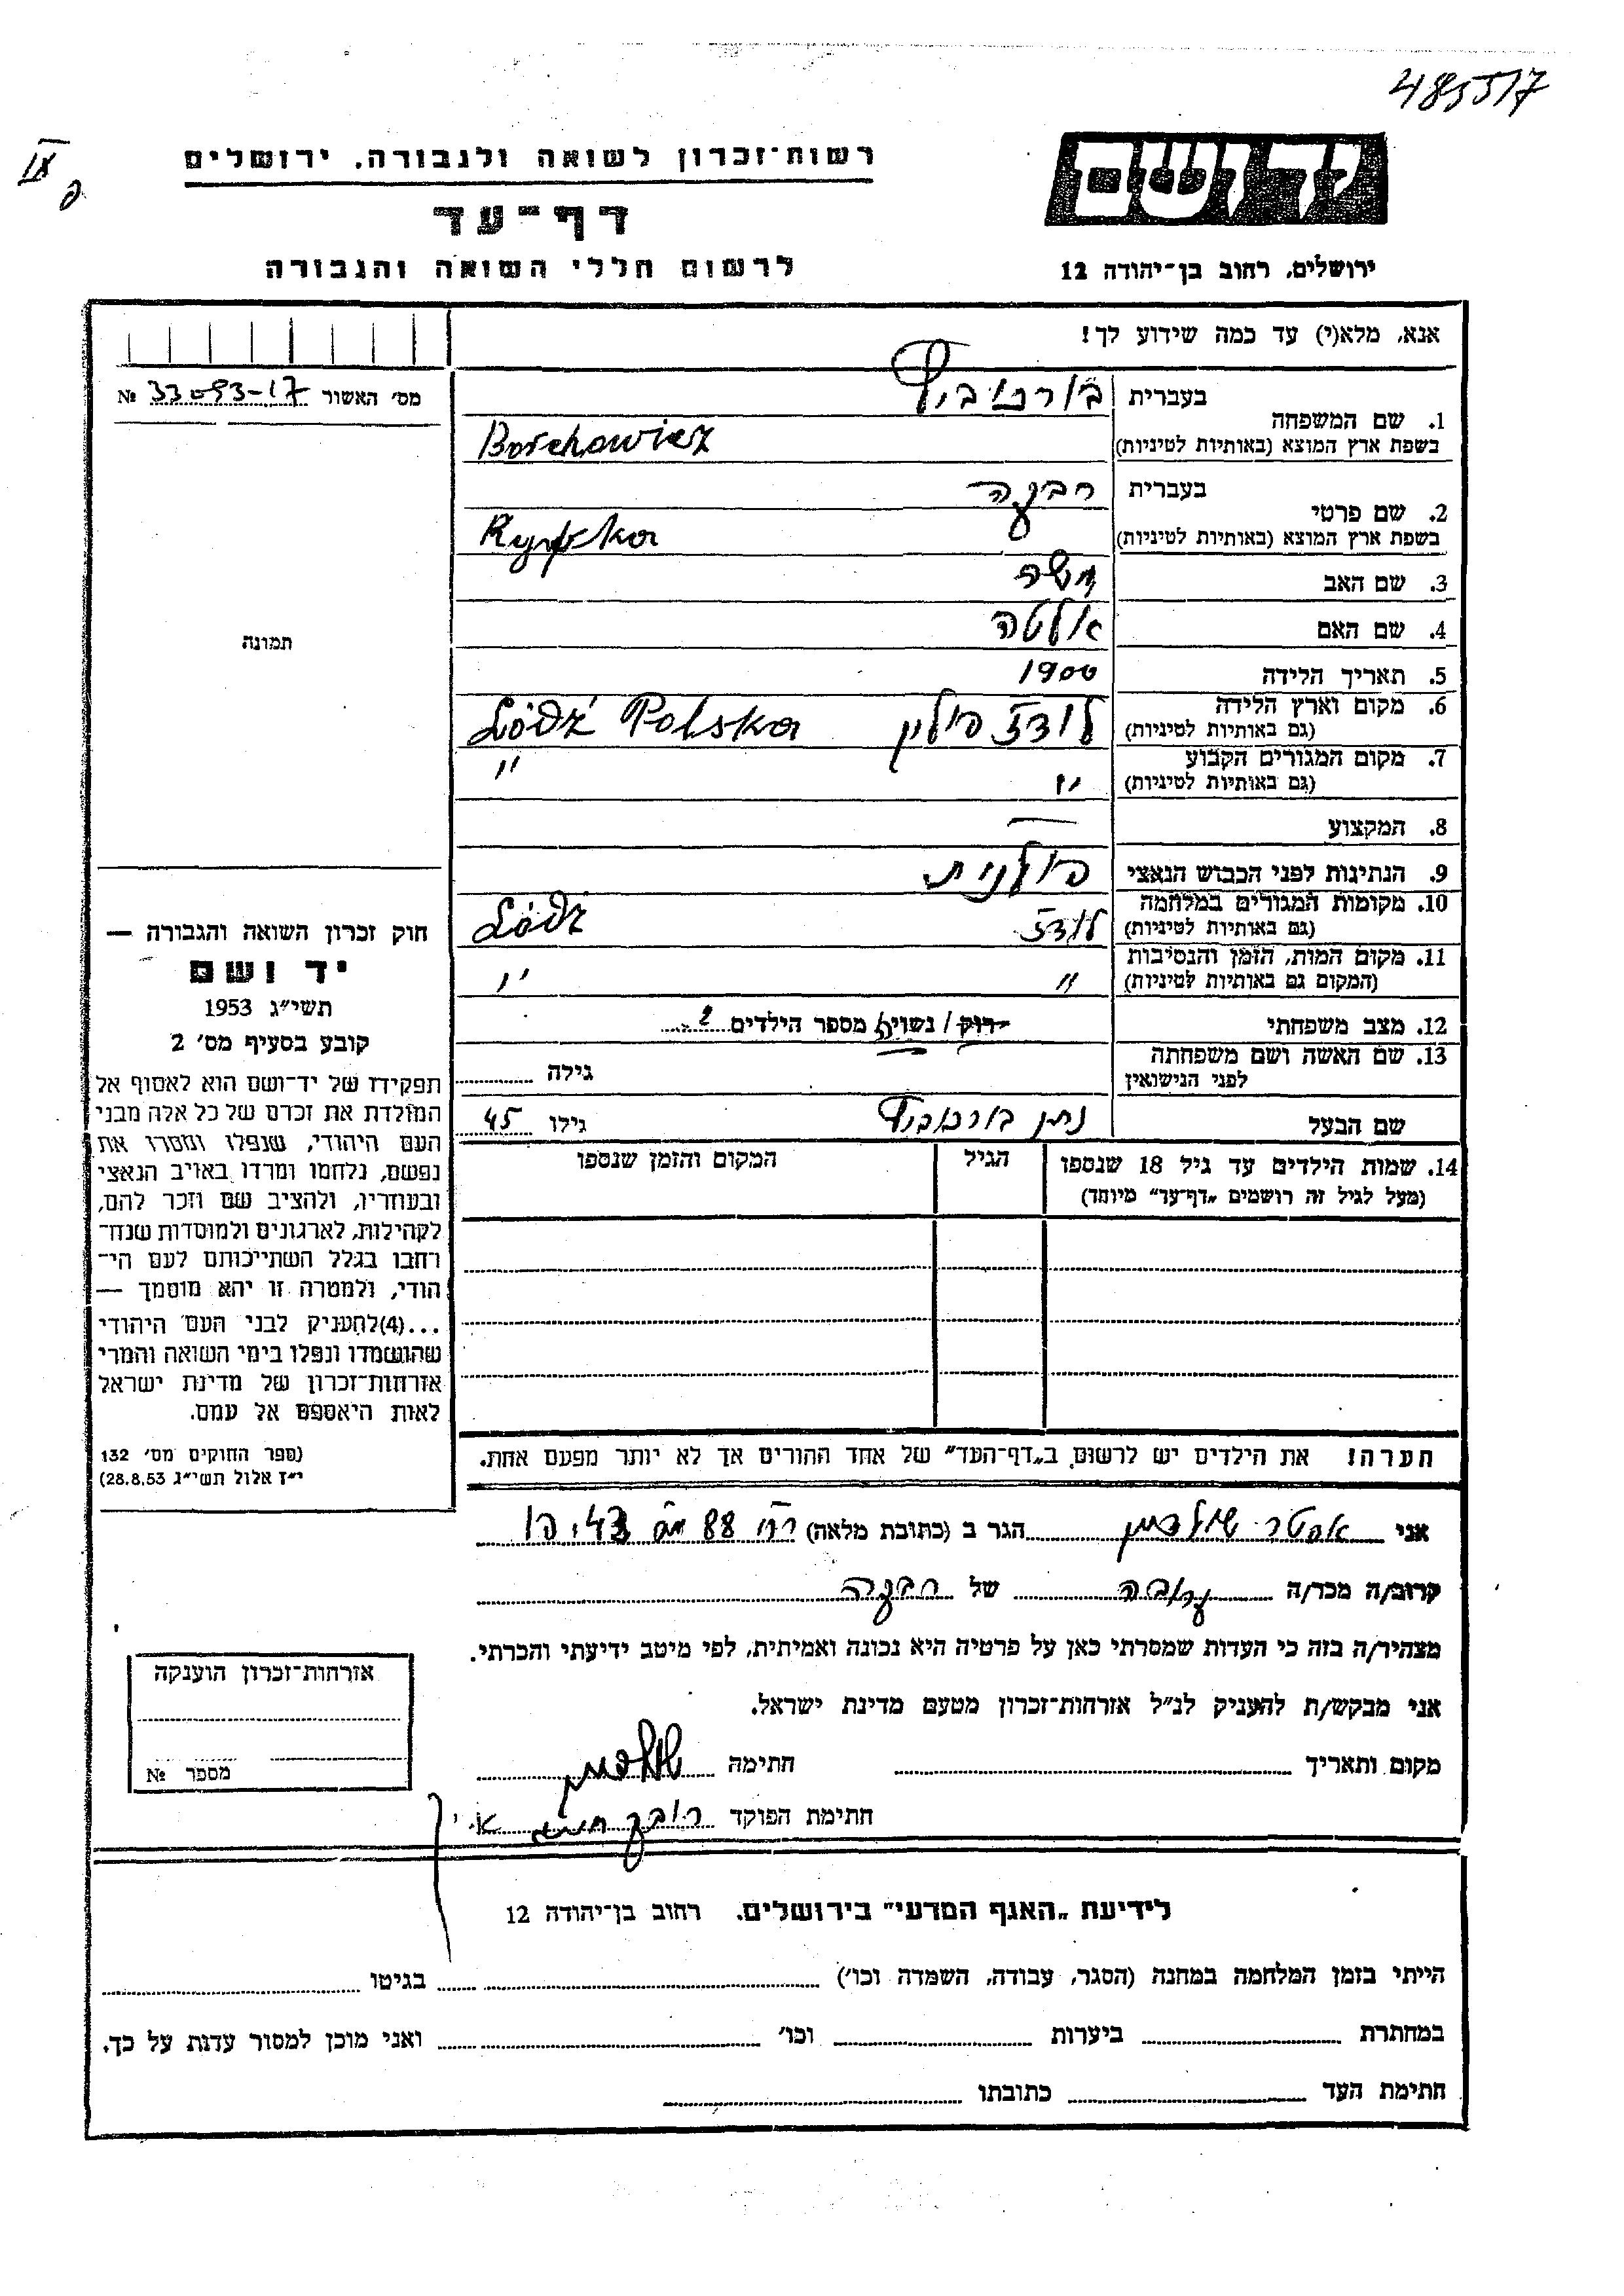 485517
IX
רשות־זכרון לשואה ולגבורה, ירושלים
יד ושם
דף־עד
לרשום חללי השואה והגבורה
ירושלים, רחוב בן־יהודה 12
אנא, מלא(י) עד כמה שידוע לך!
מס׳ האשור 33093-17 №
1. שם המשפחה
בעברית בורכוביץ
בשפת ארץ המוצא (באותיות לטיניות) Borchowicz
2. שם פרטי
בעברית רבקה
בשפת ארץ המוצא (באותיות לטיניות) Rywka
3. שם האב משה
4. שם האם אלטה
5. תאריך הלידה 1900
6. מקום וארץ הלידה לודז פולין Łódź Polska
(גם באותיות לטיניות)
7. מקום המגורים הקבוע
(גם באותיות לטיניות) " "
8. המקצוע —
9. הנתינות לפני הכבוש הנאצי פולנית
10. מקומות המגורים במלחמה לודז Łódź
(גם באותיות לטיניות)
11. מקום המות, הזמן והנסיבות
(המקום גם באותיות לטיניות) " "
12. מצב משפחתי רוק / נשוי/ה מספר הילדים 2
13. שם האשה ושם משפחתה
לפני הנישואין גילה
שם הבעל נתן בורכוביץ גילו 45
14. שמות הילדים עד גיל 18 שנספו הגיל המקום והזמן שנספו
(מעל לגיל זה רושמים „דף־עד” מיוחד)
הערה! את הילדים יש לרשום ב„דף־העד” של אחד ההורים אך לא יותר מפעם אחת.
תמונה
חוק זכרון השואה והגבורה —
יד ושם
תשי״ג 1953
קובע בסעיף מס׳ 2
תפקידו של יד־ושם הוא לאסוף אל
המולדת את זכרם של כל אלה מבני
העם היהודי, שנפלו ומסרו את
נפשם, נלחמו ומרדו באויב הנאצי
ובעוזריו, ולהציב שם וזכר להם,
לקהילות, לארגונים ולמוסדות שנח־
רבו בגלל השתייכותם לעם הי־
הודי, ולמטרה זו יהא מוסמך —
...(4)להעניק לבני העם היהודי
שהושמדו ונפלו בימי השואה והמרי
אזרחות־זכרון של מדינת ישראל
לאות היאספם אל עמם.
(ספר החוקים מס׳ 132
י״ז אלול תשי״ג 28.8.53)
אני אסטר הגר ב (כתובת מלאה) 88
קרוב/ה מכר/ה קרובה של רבקה
מצהיר/ה בזה כי העדות שמסרתי כאן על פרטיה היא נכונה ואמיתית, לפי מיטב ידיעתי והכרתי.
אני מבקש/ת להעניק לנ״ל אזרחות־זכרון מטעם מדינת ישראל.
מקום ותאריך חתימה
חתימת הפוקד
אזרחות־זכרון הוענקה
מספר №
לידיעת „האגף המדעי” בירושלים, רחוב בן־יהודה 12
הייתי בזמן המלחמה במחנה (הסגר, עבודה, השמדה וכו׳) בגיטו
במחתרת ביערות וכו׳ ואני מוכן למסור עדות על כך.
חתימת העד כתובתו